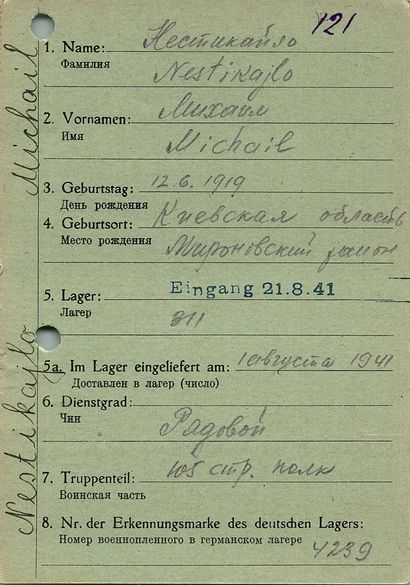 121
1. Name: Нестикайло
Фамилия
Nestikajlo
2. Vornamen: Михаил
Имя
Michail
3. Geburtstag: 12.6.1919
День рождения
4. Geburtsort: Киевская область
Место рождения
Мироновский район
5. Lager: Eingang 21.8.41
Лагер
311
5a. Im Lager eingeliefert am: 1 августа 1941
Доставлен в лагер (число)
6. Dienstgrad:
Чин
Рядовой
7. Truppenteil: стр. полк
Воинская часть
8. Nr. der Erkennungsmarke des deutschen Lagers:
Номер военнопленного в германском лагере
4239
Nestikajlo Michail